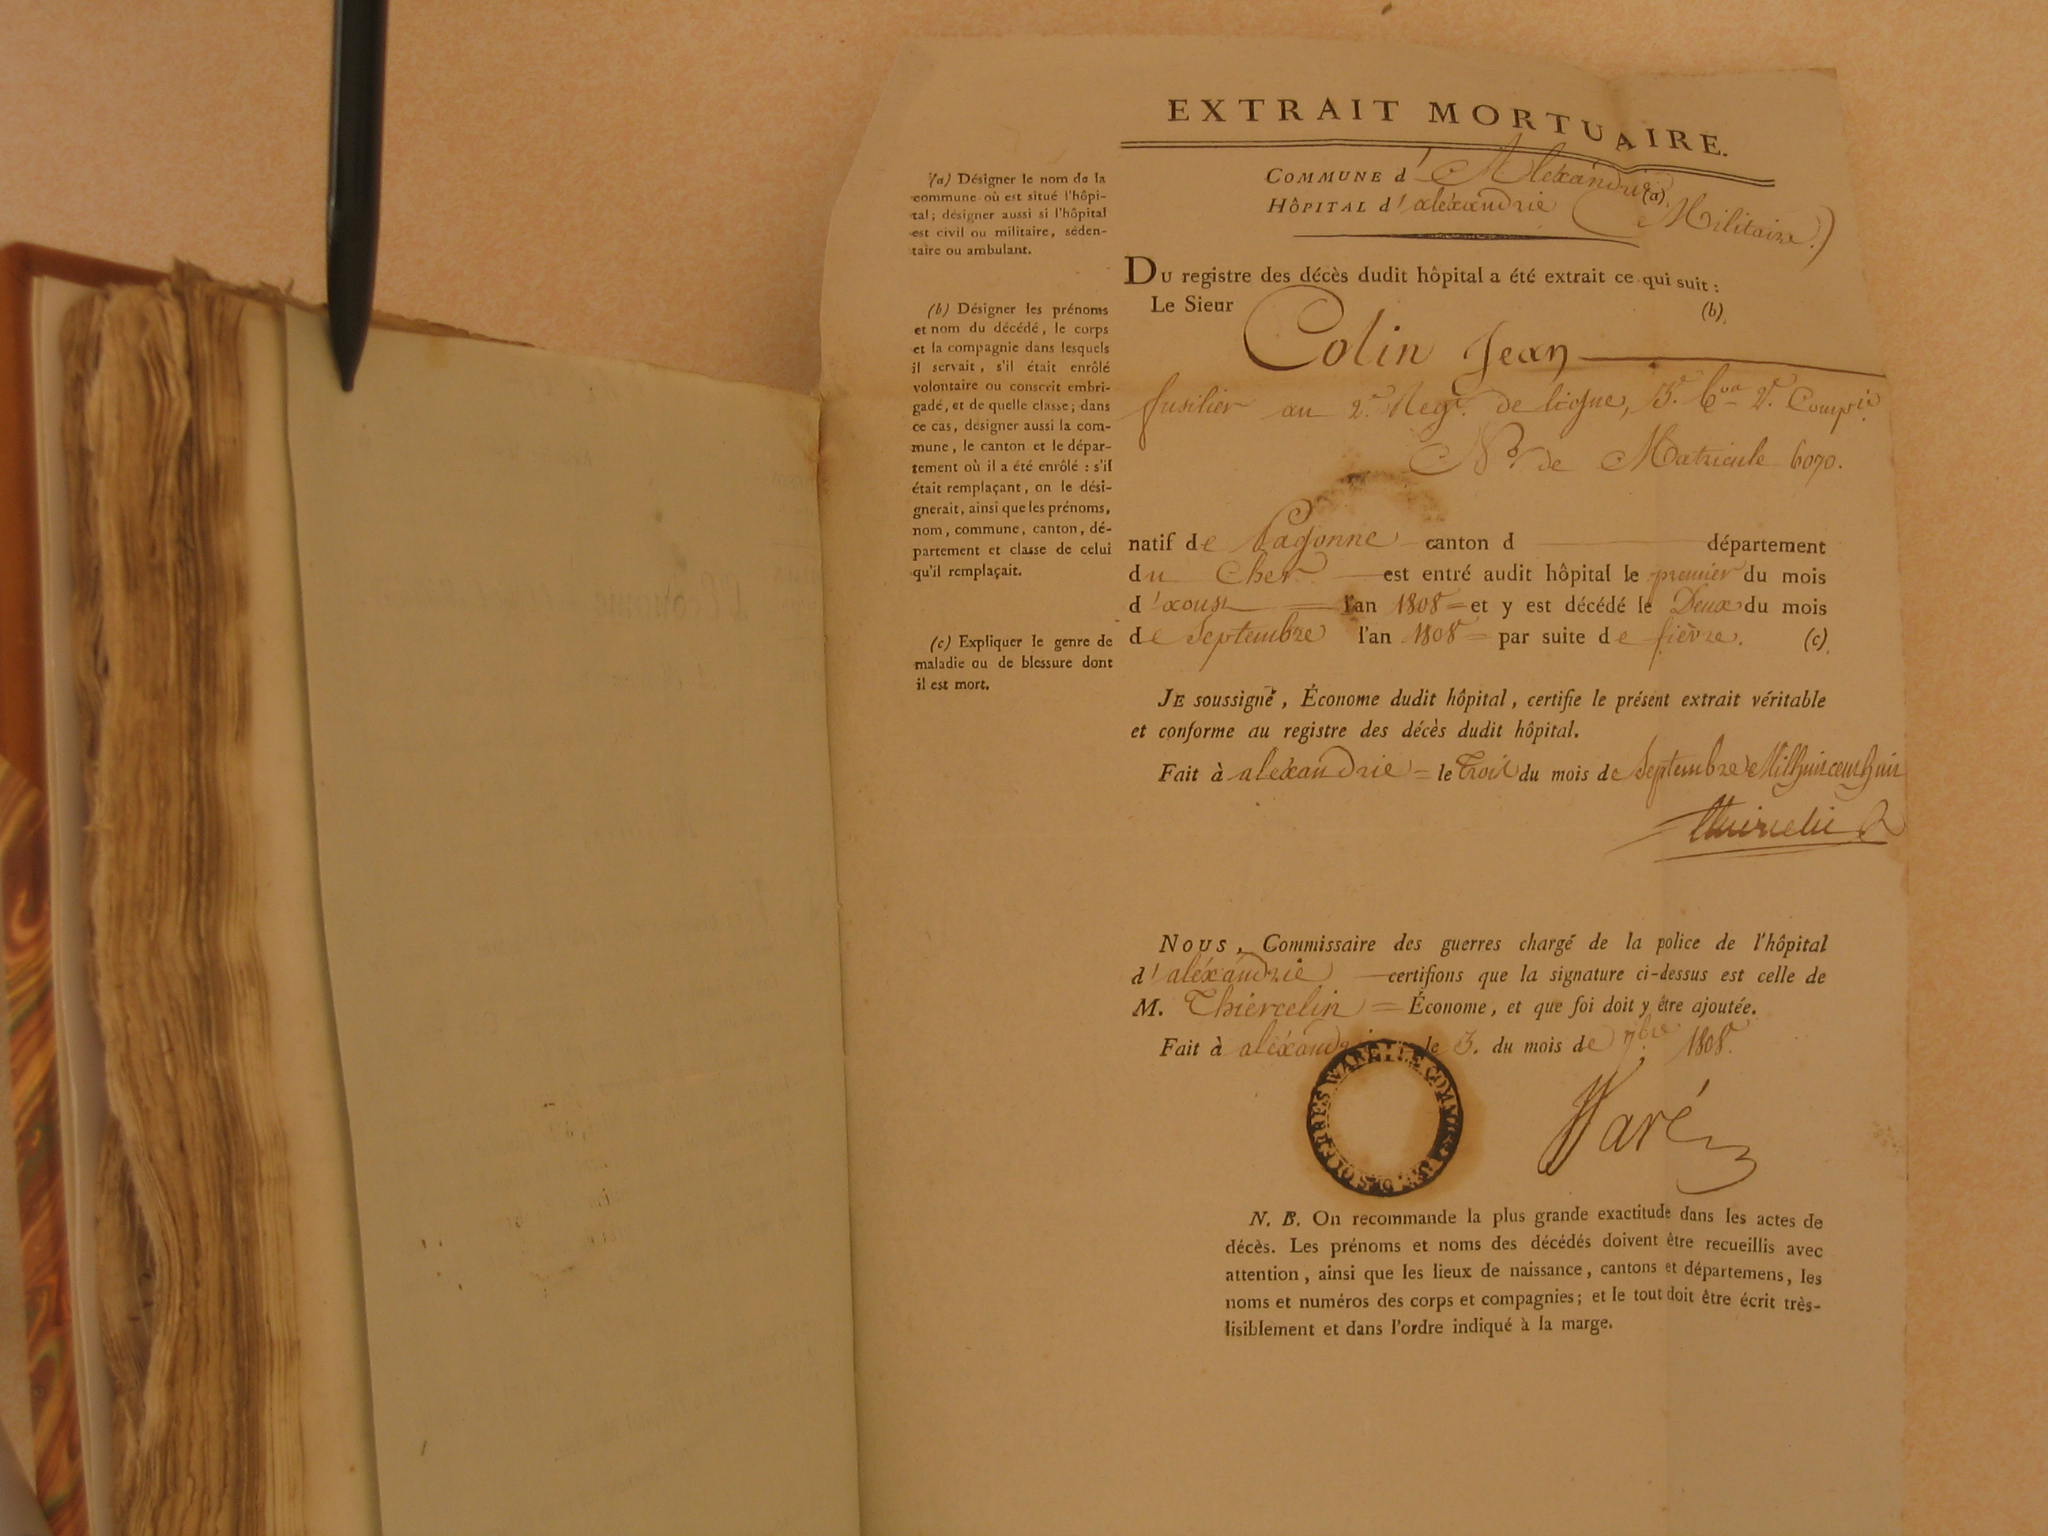 EXTRAIT MORTUAIRE.
COMMUNE d' Aléxandrie (a).
HÔPITAL d' aléxandrie (Militaire.)
(a) Désigner le nom de la
commune où est situé l'hôpi-
tal; désigner aussi si l'hôpital
est civil ou militaire, séden-
taire ou ambulant.
DU registre des décès dudit hôpital a été extrait ce qui suit :
Le Sieur (b).
Colin Jean
fusilier au 2.e Regt. de ligne, 3.e bon 2.e Compie.
No. de Matricule 6070.
(b) Désigner les prénoms
et nom du décédé, le corps
et la compagnie dans lesquels
il servait, s'il était enrôlé
volontaire ou conscrit embri-
gadé, et de quelle classe; dans
ce cas, désigner aussi la com-
mune, le canton et le dépar-
tement où il a été enrôlé : s'il
était remplaçant, on le dési-
gnerait, ainsi que les prénoms,
nom, commune, canton, dé-
partement et classe de celui
qu'il remplaçait.
natif de Lagonne canton d département
du Cher est entré audit hôpital le premier du mois
d'aoust l'an 1808 et y est décédé le Deux du mois
de Septembre l'an 1808 par suite de fièvre. (c).
(c) Expliquer le genre de
maladie ou de blessure dont
il est mort.
JE soussigné, Économe dudit hôpital, certifie le présent extrait véritable
et conforme au registre des décès dudit hôpital.
Fait à aléxandrie le Trois du mois de Septembre Mil huit cent huit
Thiercelin
NOUS, Commissaire des guerres chargé de la police de l'hôpital
d'aléxandrie certifions que la signature ci-dessus est celle de
M. Thiercelin Économe, et que foi doit y être ajoutée.
Fait à aléxandrie le 3. du mois de 7bre 1808.
Waré
N. B. On recommande la plus grande exactitude dans les actes de
décès. Les prénoms et noms des décédés doivent être recueillis avec
attention, ainsi que les lieux de naissance, cantons et départemens, les
noms et numéros des corps et compagnies; et le tout doit être écrit très-
lisiblement et dans l'ordre indiqué à la marge.